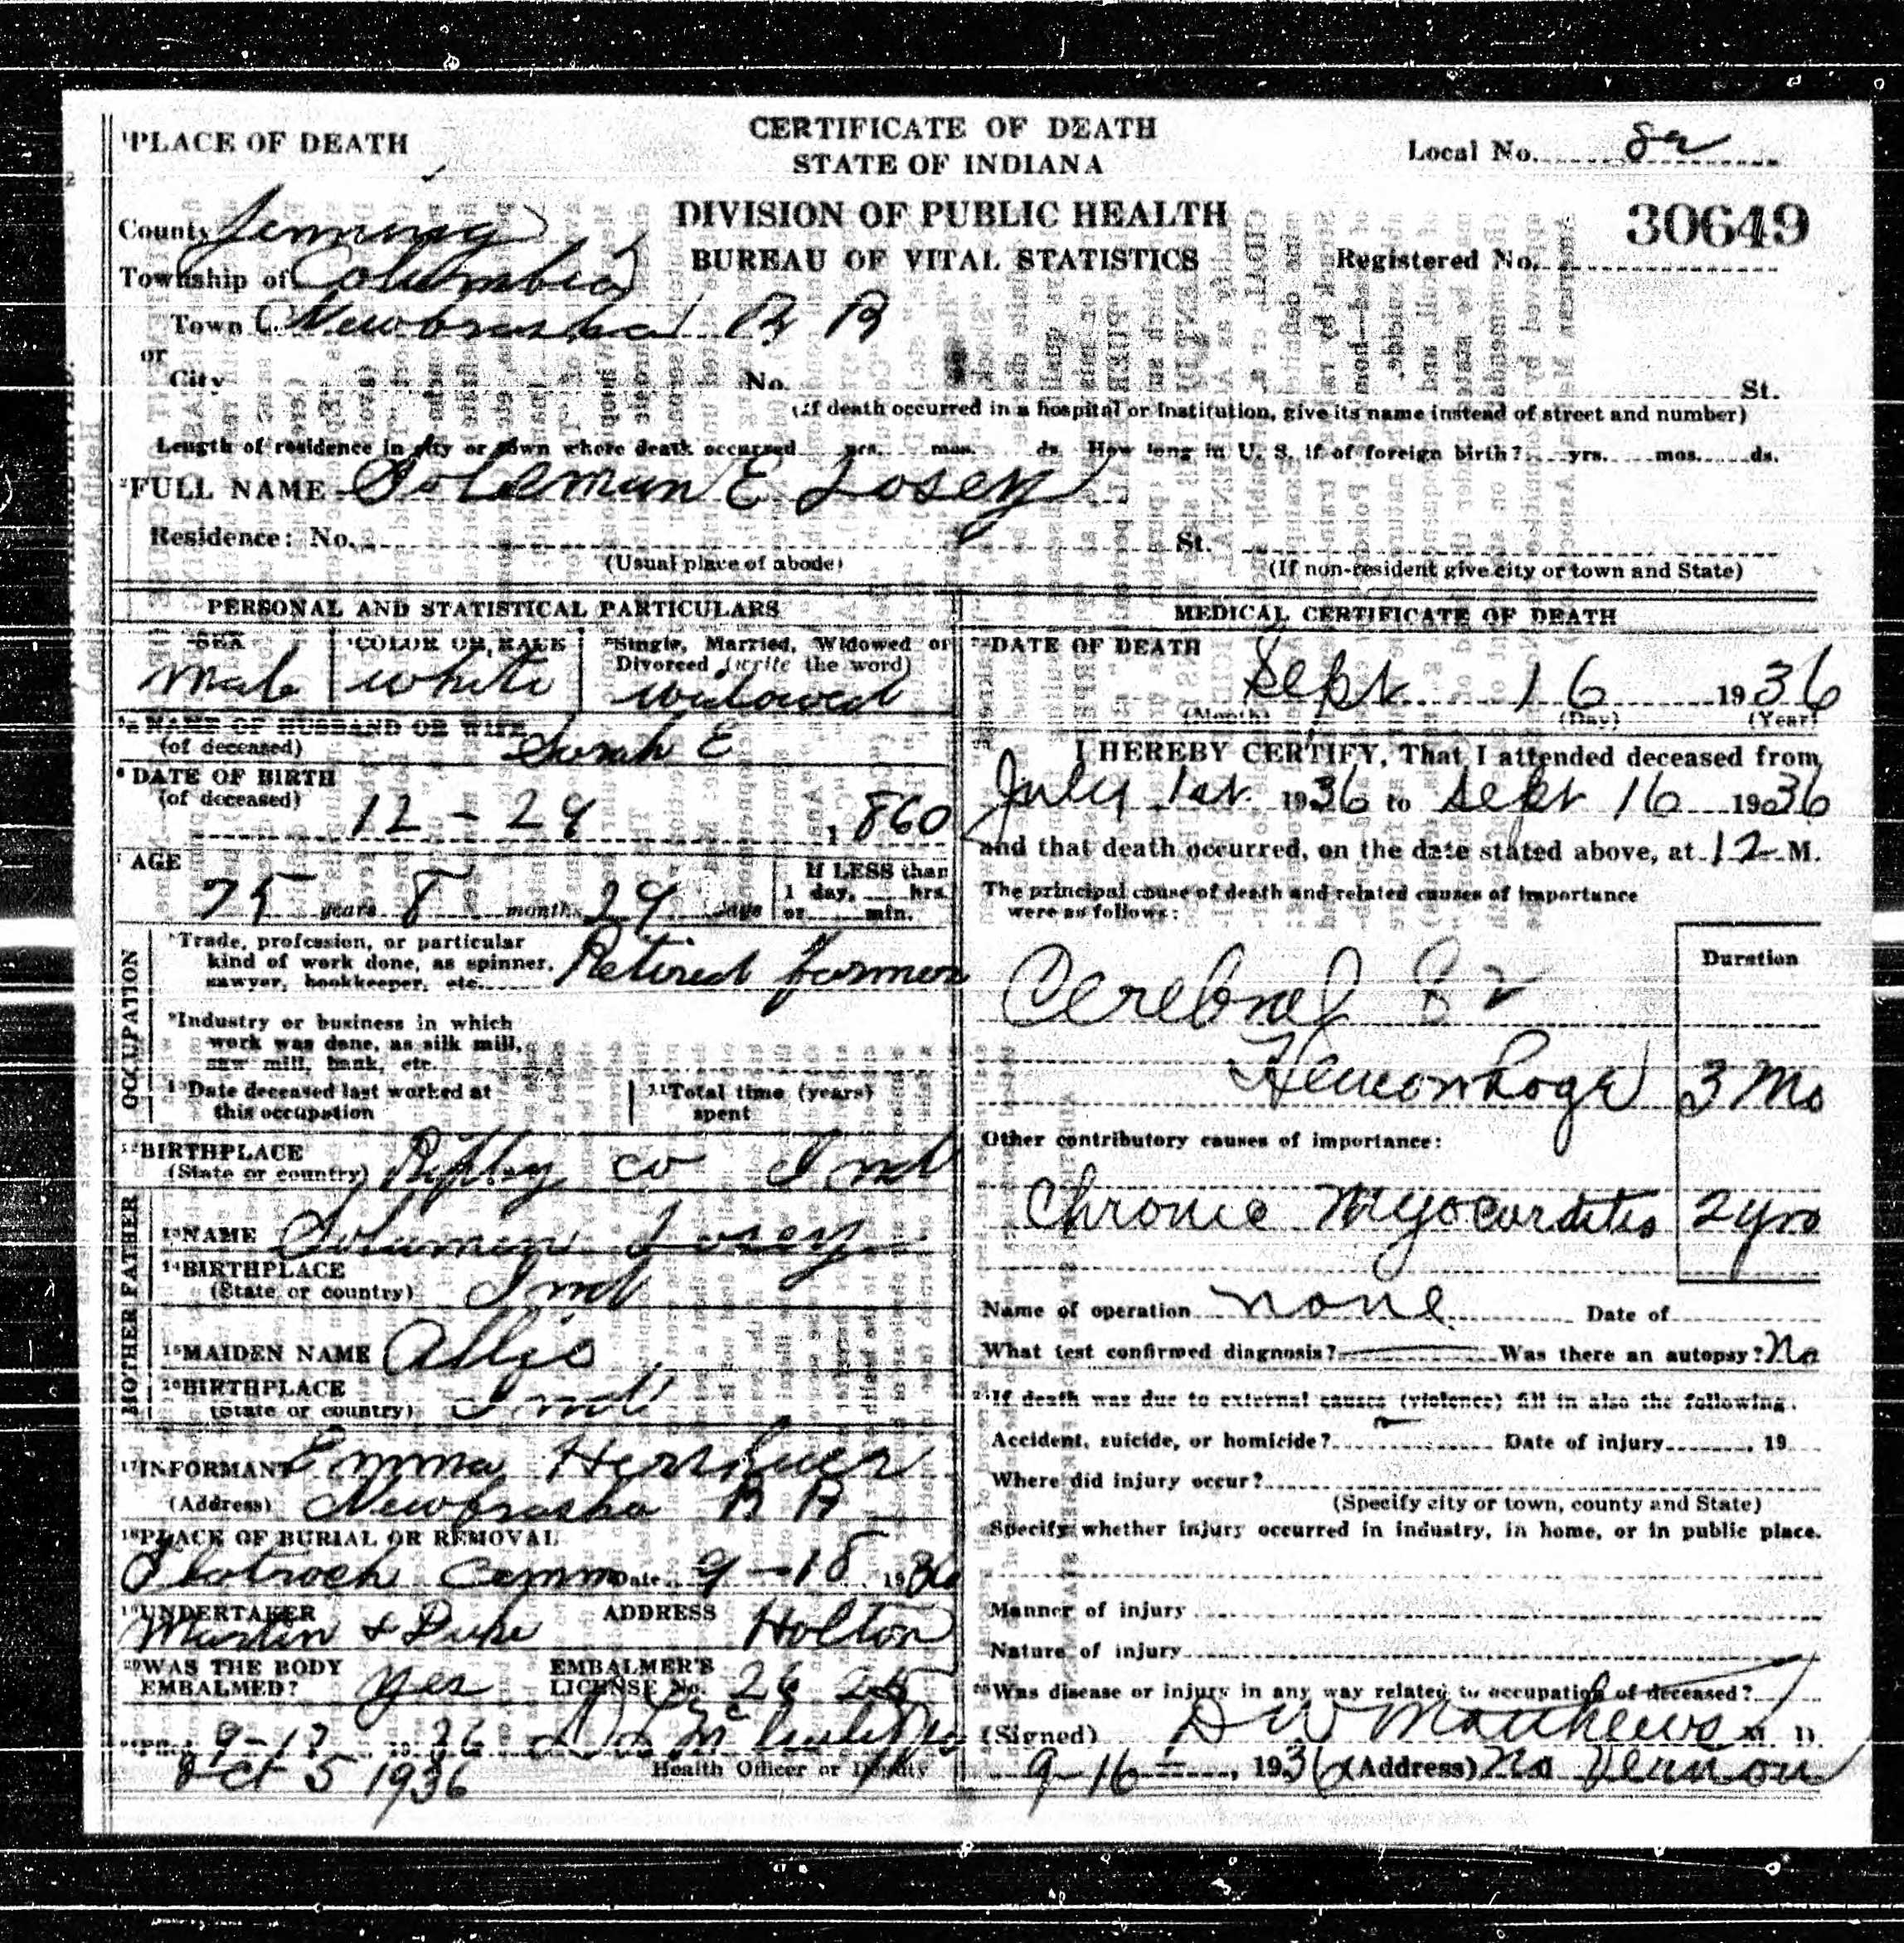 CERTIFICATE OF DEATH
STATE OF INDIANA
DIVISION OF PUBLIC HEALTH
BUREAU OF VITAL STATISTICS
Local No.
30649
Registered No.
1 PLACE OF DEATH
County Jennings
Township of Columbia
Town Newbraska R R
or
City No. St.
(If death occurred in a hospital or institution, give its name instead of street and number)
Length of residence in city or town where death occurred yrs. mos. ds. How long in U. S. if of foreign birth? yrs. mos. ds.
2 FULL NAME Soleman E Losey
Residence: No. St.
(Usual place of abode) (If non-resident give city or town and State)
PERSONAL AND STATISTICAL PARTICULARS
SEX COLOR OR RACE Single, Married, Widowed or
Divorced (write the word)
Male white widowed
NAME OF HUSBAND OR WIFE
(of deceased) Sarah E
6 DATE OF BIRTH
(of deceased) 12 - 24 1860
7 AGE If LESS than
1 day, hrs.
or min.
75 years 8 months days
OCCUPATION
Trade, profession, or particular
kind of work done, as spinner,
sawyer, bookkeeper, etc. Retired farmer
9 Industry or business in which
work was done, as silk mill,
saw mill, bank, etc.
10 Date deceased last worked at
this occupation
11 Total time (years)
spent
12 BIRTHPLACE
(State or country) Ripley co Ind
FATHER
13 NAME Solumen Losey
14 BIRTHPLACE
(State or country) Ind
MOTHER
15 MAIDEN NAME Allie
16 BIRTHPLACE
(State or country) Ind
17 INFORMANT Emma
(Address) Newbraska R R
18 PLACE OF BURIAL OR REMOVAL
Cemm Date 9-18 1936
19 UNDERTAKER ADDRESS
Martin & Holton
20 WAS THE BODY
EMBALMED? yes
EMBALMER'S
LICENSE No.
9-17 36
Health Officer or Deputy
Oct 5 1936
MEDICAL CERTIFICATE OF DEATH
DATE OF DEATH
Sept 16 1936
(Month) (Day) (Year)
I HEREBY CERTIFY, That I attended deceased from
July 1st 1936 to Sept 16 1936
and that death occurred, on the date stated above, at 12 M.
The principal cause of death and related causes of importance
were as follows:
Duration
Cerebral 82
Hemorrhage 3 Mo
Other contributory causes of importance:
Chronic Myocarditis 2 yrs
Name of operation none Date of
What test confirmed diagnosis? Was there an autopsy? No
If death was due to external causes (violence) fill in also the following.
Accident, suicide, or homicide? Date of injury , 19
Where did injury occur?
(Specify city or town, county and State)
Specify whether injury occurred in industry, in home, or in public place.
Manner of injury
Nature of injury
Was disease or injury in any way related to occupation of deceased?
(Signed) D W Matthews M. D.
9-16 , 1936 (Address) No Vernon